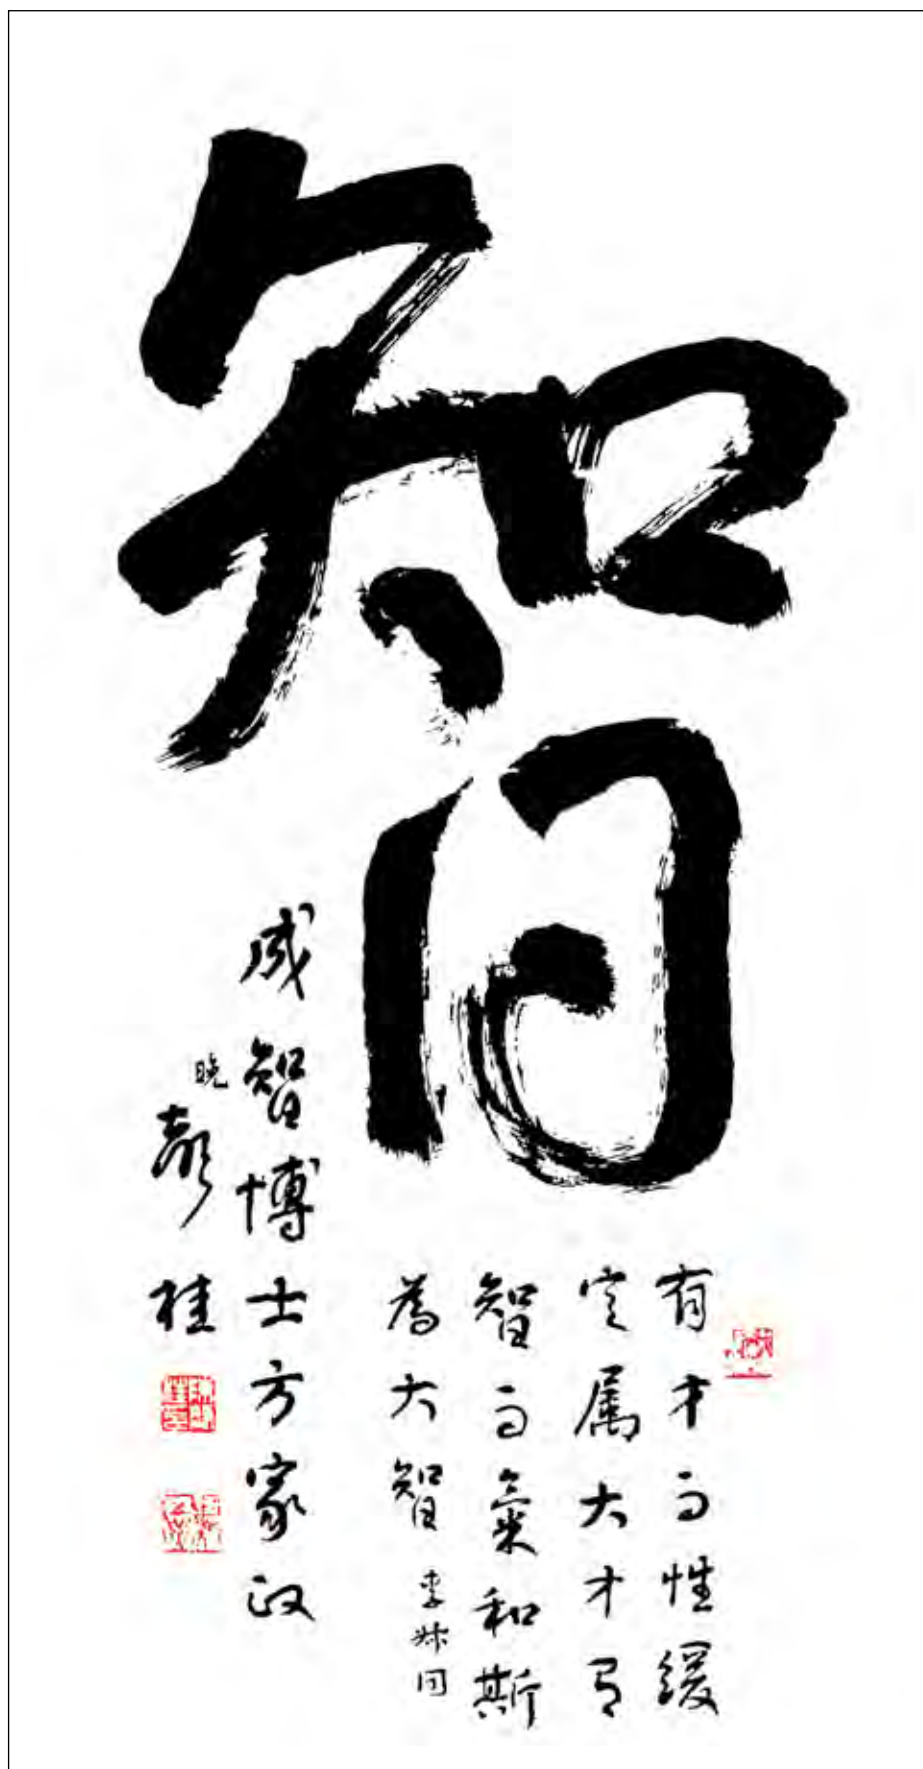 智
有才而性缓
定属大才有
智而氣和斯
為大智 李叔同
成智博士方家政
晚 桂